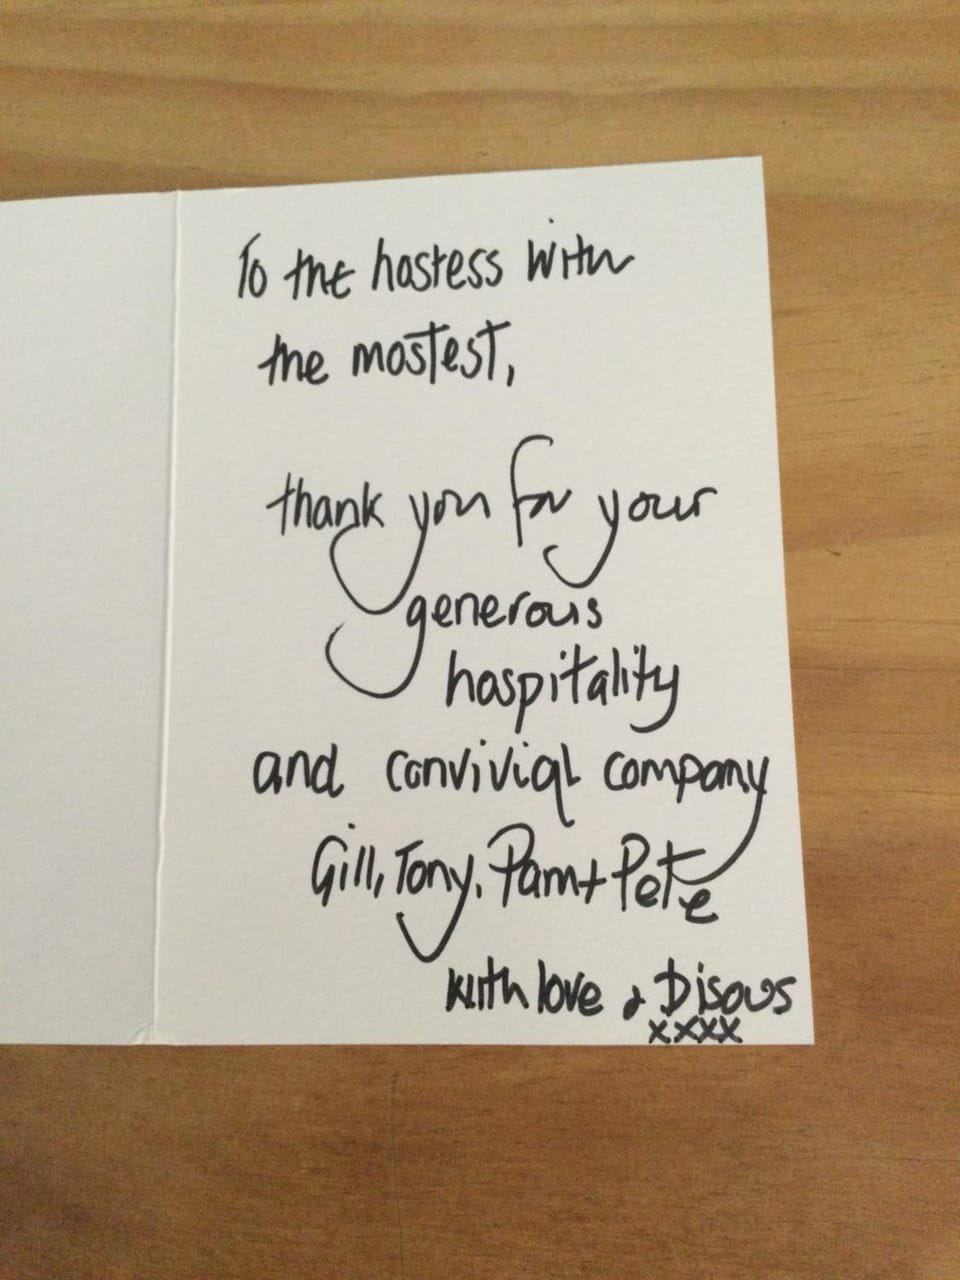 To the hostess with
the mostest,
thank you for your
generous
hospitality
and convivial company
Gill, Tony, Pam + Pete
with love &
xxxx